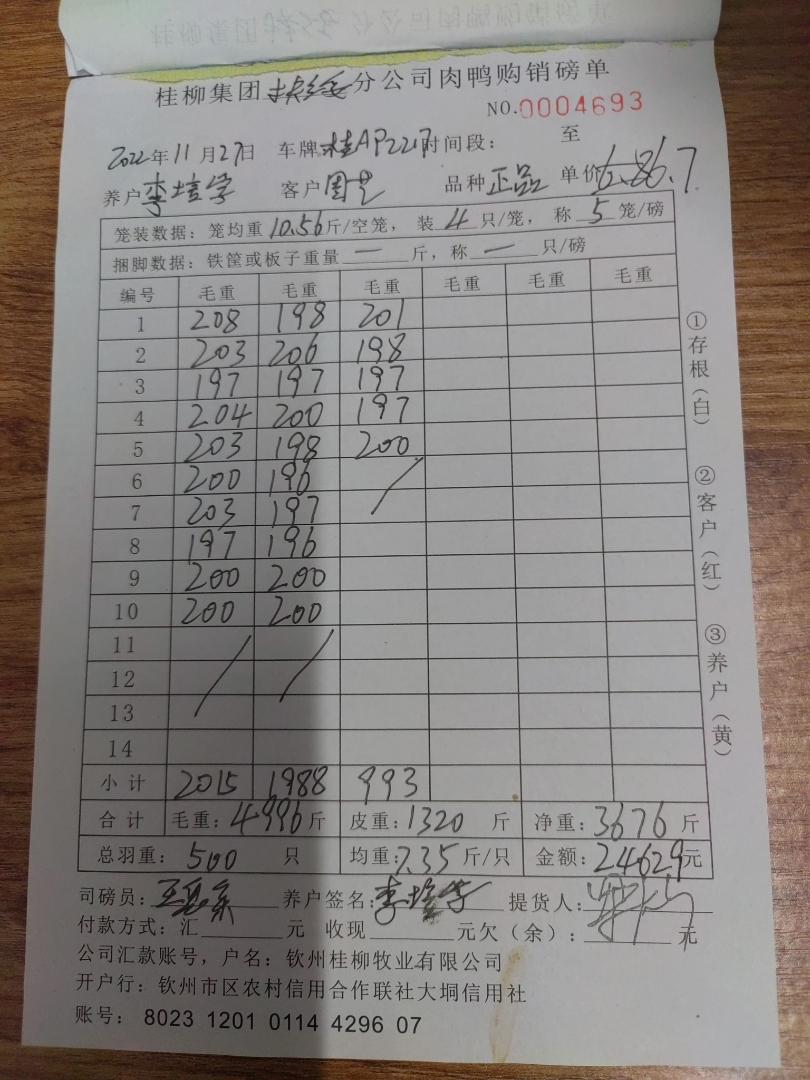 桂柳集团 分公司肉鸭购销磅单
NO.0004693
2022年11月27日 车牌桂AP2217时间段: 至
养户李培学 客户周 品种正品 单价6.86.7
笼装数据: 笼均重10.56斤/空笼, 装4只/笼, 称5笼/磅
捆脚数据: 铁筐或板子重量一斤, 称一只/磅
编号 毛重 毛重 毛重 毛重 毛重 毛重
1 208 198 201
2 203 206 198
3 197 197 197
4 204 200 197
5 203 198 200
6 200 196
7 203 197
8 197 196
9 200 200
10 200 200
11
12
13
14
小计 2015 1988 993
合计 毛重: 4996斤 皮重: 1320斤 净重: 3676斤
总羽重: 500只 均重: 7.35斤/只 金额: 24629元
司磅员: 养户签名: 李培学 提货人:
付款方式: 汇 元 收现 元欠(余): 元
公司汇款账号, 户名: 钦州桂柳牧业有限公司
开户行: 钦州市区农村信用合作联社大垌信用社
账号: 8023 1201 0114 4296 07
①存根(白) ②客户(红) ③养户(黄)